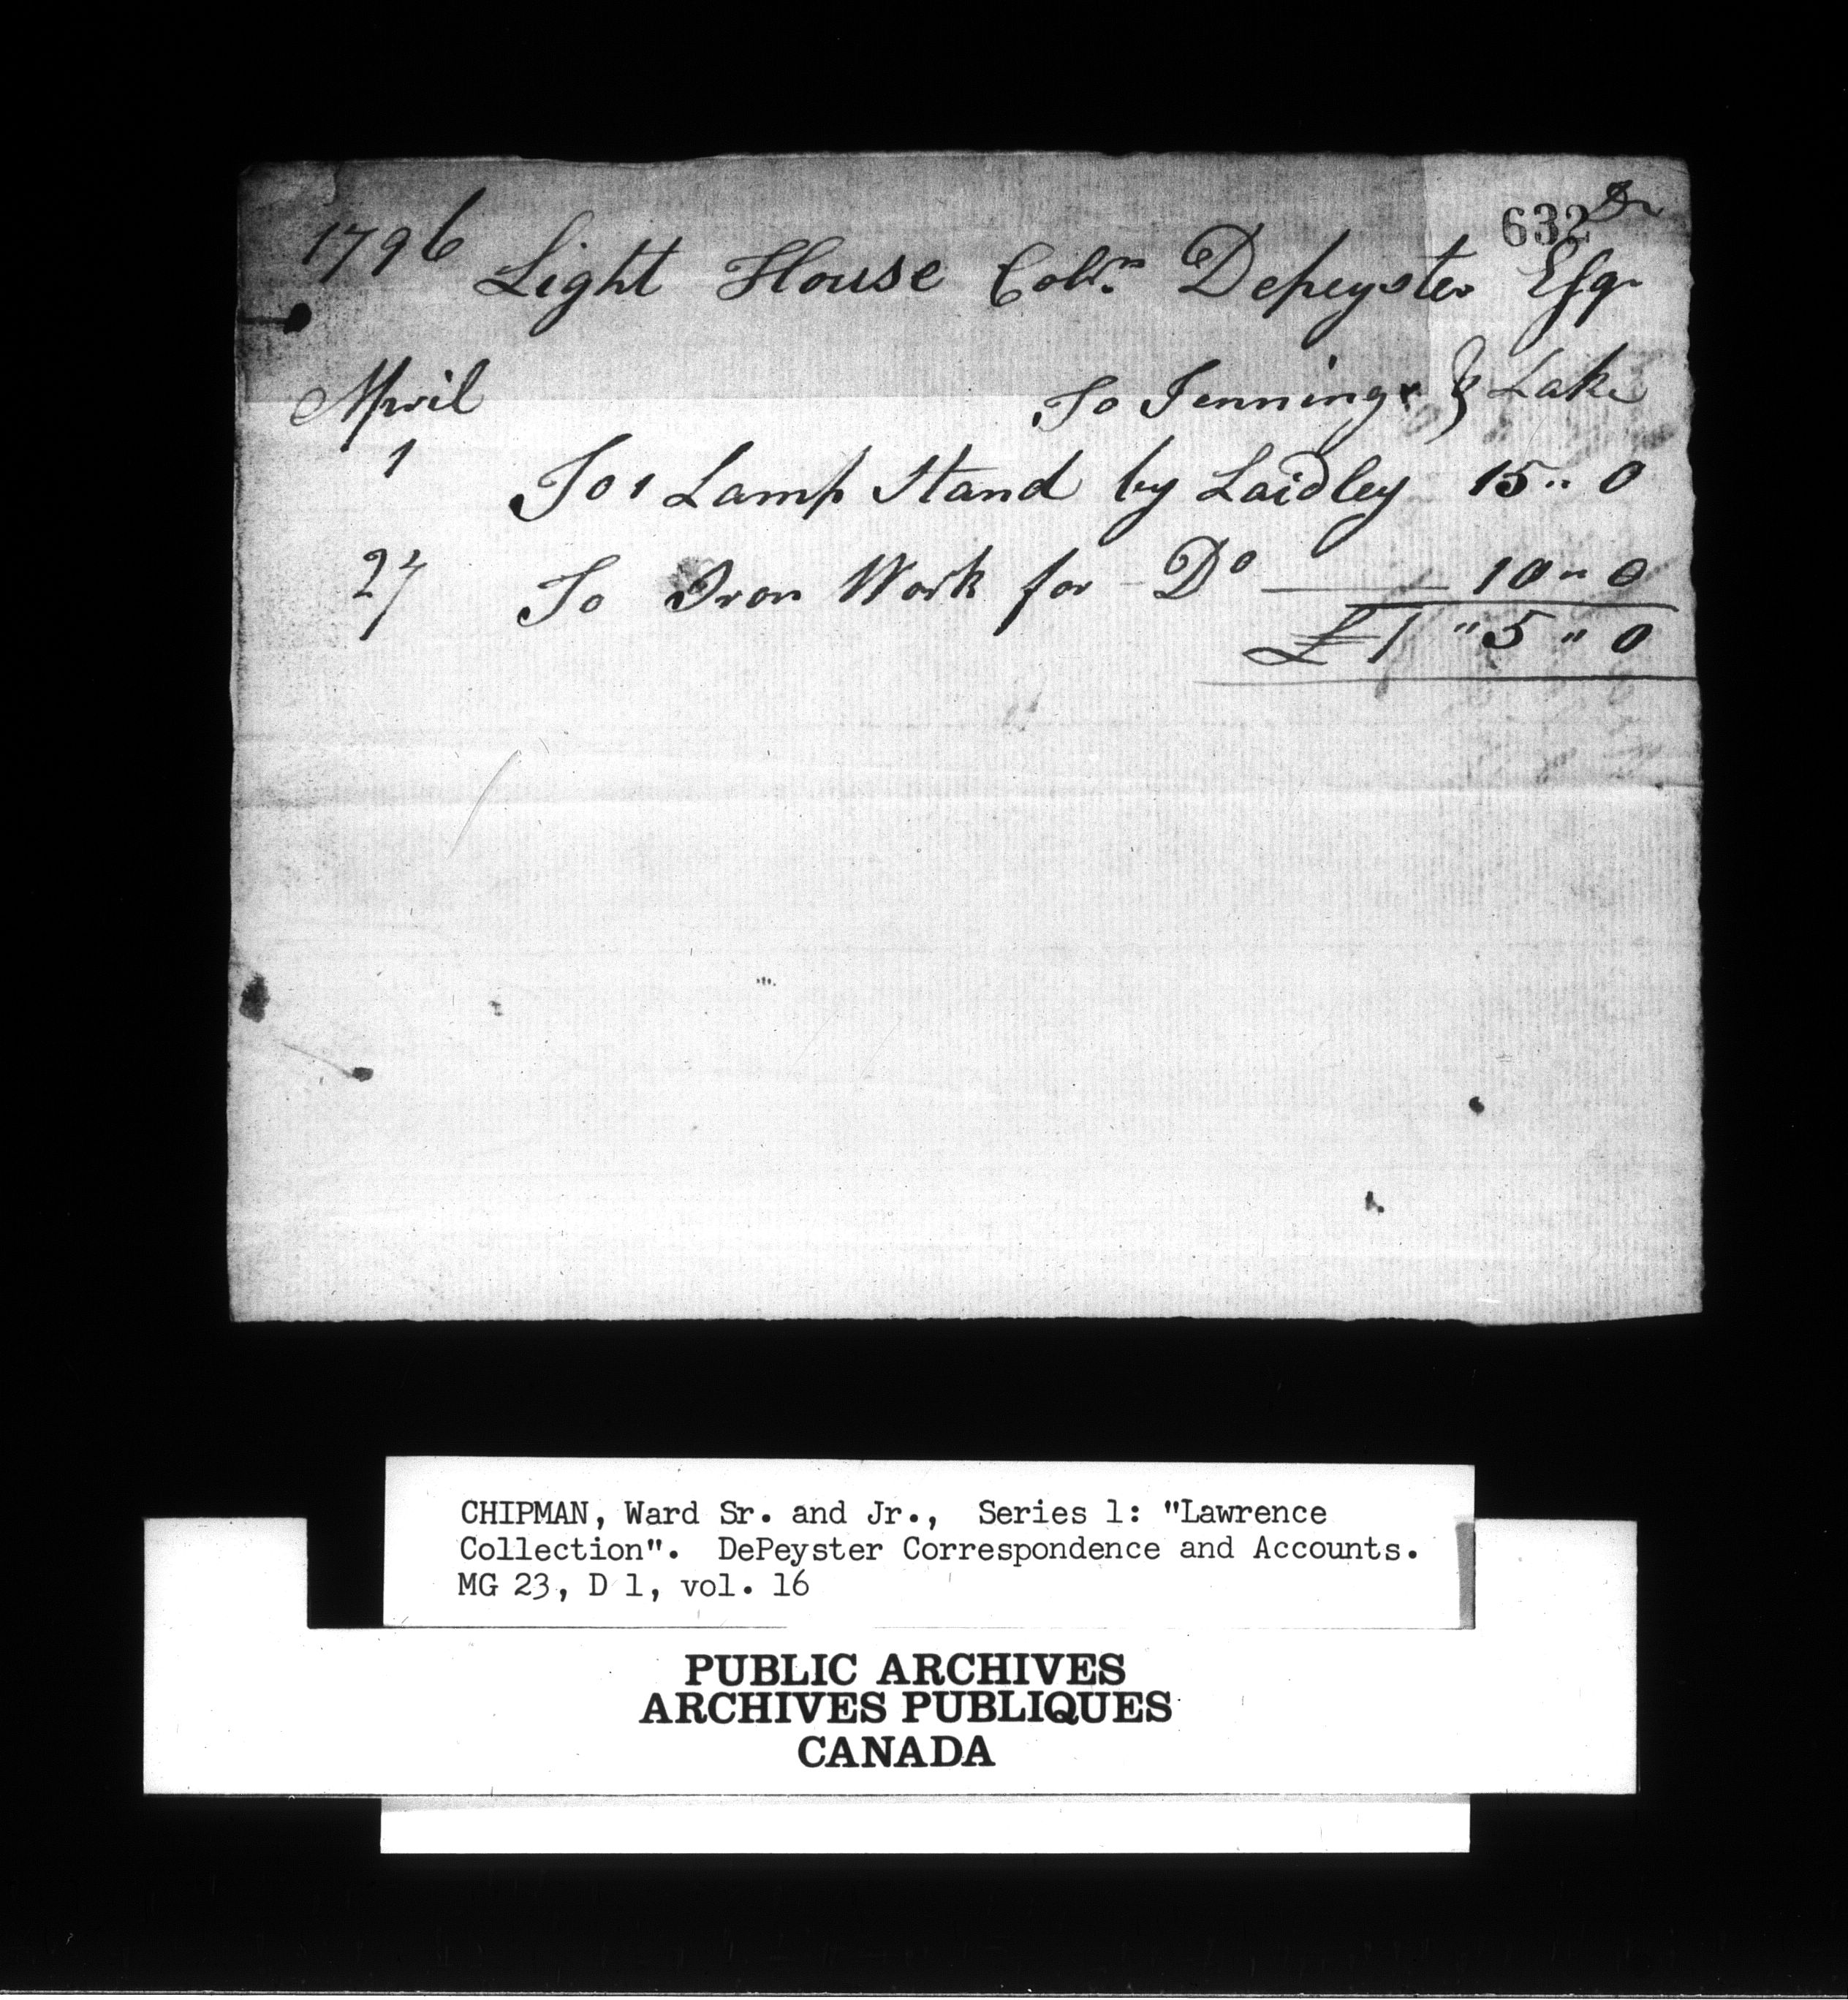 632 Dr
1796 Light House Coln. Depeyster Esqr
April To Jennings & Lake
1 To 1 Lamp Stand by Laidley 15 " 0
27 To Iron Work for Do 10 " 0
£1 " 5 " 0
CHIPMAN, Ward Sr. and Jr., Series 1: "Lawrence
Collection". DePeyster Correspondence and Accounts.
MG 23, D 1, vol. 16
PUBLIC ARCHIVES
ARCHIVES PUBLIQUES
CANADA